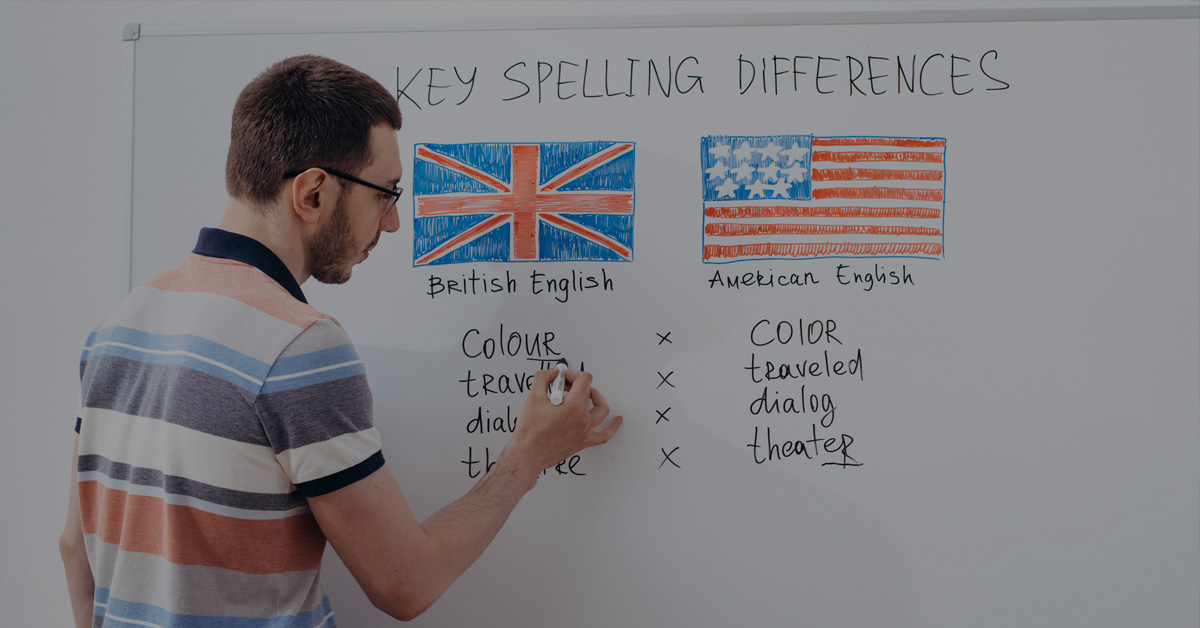 KEY SPELLING DIFFERENCES
British English
American English
Colour × COLOR
× traveled
× dialog
× theater